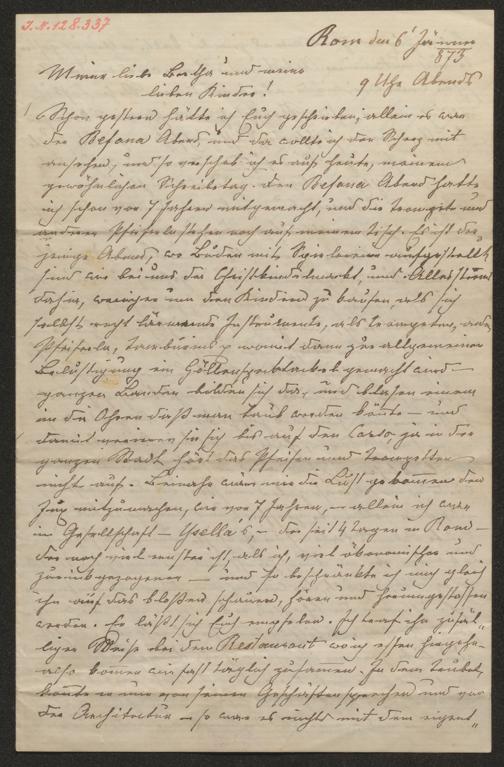 I.N.128.337
Rom den 6t Jänner
873
Meine liebe Bertha und meine 9 Uhr Abends
lieben Kinder!
Schon gestern hätte ich Euch geschrieben, allein es war
der Befana Abend, und da wollte ich den Scherz mit
ansehen, und so verschob ich es auf heute, meinem
gewöhnlichen Schreibetag. Den Befana Abend hatte
ich schon vor 7 Jahren mitgemacht, und die Trompete und
anderen Pfeiferln stehen noch auf meinem Tisch. Es ist der
jenige Abend, wo Buden mit Spielereien aufgestellt
sind wie bei uns der Christkindelmarkt, und Alles strömt
dahin, weniger um den Kindern zu kaufen als sich
selbst recht lärmende Instrumente, als Trompeten, und
Pfeiferln, Tambourins womit dann zur allgemeinen
Belustigung ein Höllenspektakel gemacht wird –
ganzen Banden bilden sich da, und blasen einem
in die Ohren daß man taub werden könte – und
damit sie sich bis auf den Corso, ja in der
ganzen Stadt hört das Pfeifen und Trompetten
nicht auf. Beinahe wäre mir die Lust gekommen den
Jux mitzumachen, wie vor 7 Jahren, – allein ich war
in Gesellschaft – Ysella's – der seit 4 Tagen in Rom –
der noch viel ernster ist als ich, viel ökonomischer und
zurückgezogener – und so beschränkte ich mich gleich
ihn auf das bloßen schauen, hören und herumgestossen
werden. Er läßt sich Euch empfelen. Ich traf ihn zufäl„
liger Weise bei dem Restaurant wo ich essen hingehe –
also komen wir fast täglich zusammen. In dem Trubel,
könte er nur von seinen Geschäften sprechen und von
der Architectur – so war es nichts mit dem eigent„